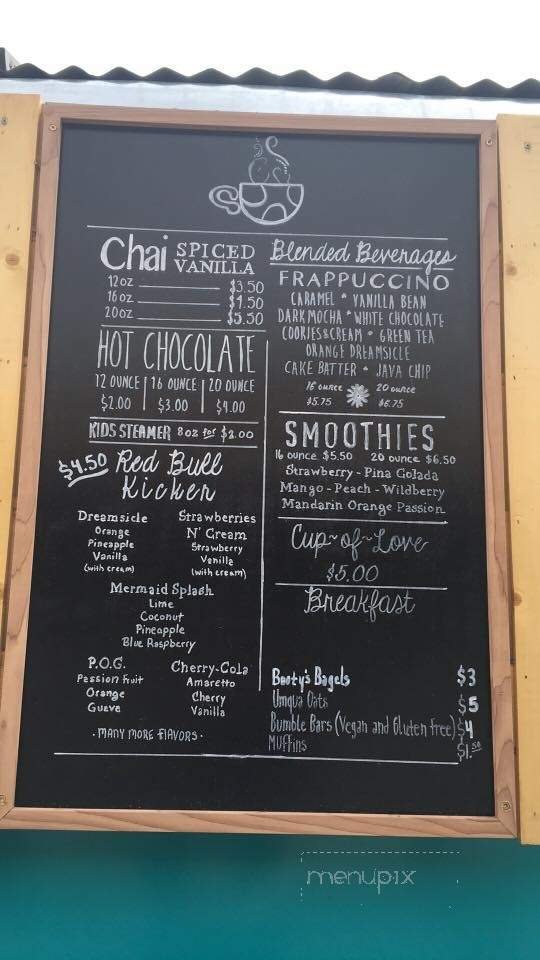 Chai SPICED VANILLA
12oz $3.50
16oz $4.50
20oz $5.50
HOT CHOCOLATE
12 OUNCE | 16 OUNCE | 20 OUNCE
$2.00 | $3.00 | $4.00
KIDS STEAMER 8oz for $2.00
$4.50 Red Bull
Kicker
Dreamsicle
Orange
Pineapple
Vanilla
(with cream)
Strawberries
N' Cream
Strawberry
Vanilla
(with cream)
Mermaid Splash
Lime
Coconut
Pineapple
Blue Raspberry
P.O.G.
Passion fruit
Orange
Guava
Cherry-Cola
Amaretto
Cherry
Vanilla
• MANY MORE FLAVORS •
Blended Beverages
FRAPPUCCINO
CARAMEL * VANILLA BEAN
DARK MOCHA * WHITE CHOCOLATE
COOKIES&CREAM * GREEN TEA
ORANGE DREAMSICLE
CAKE BATTER * JAVA CHIP
16 ounce 20 ounce
$5.75 $6.75
SMOOTHIES
16 ounce $5.50 20 ounce $6.50
Strawberry - Pina Colada
Mango - Peach - Wildberry
Mandarin Orange Passion
Cup~of~Love
$5.00
Breakfast
Booty's Bagels $3
Umqua Oats $5
Bumble Bars (Vegan and Gluten free) $4
MUFFINS $1.50
menupix